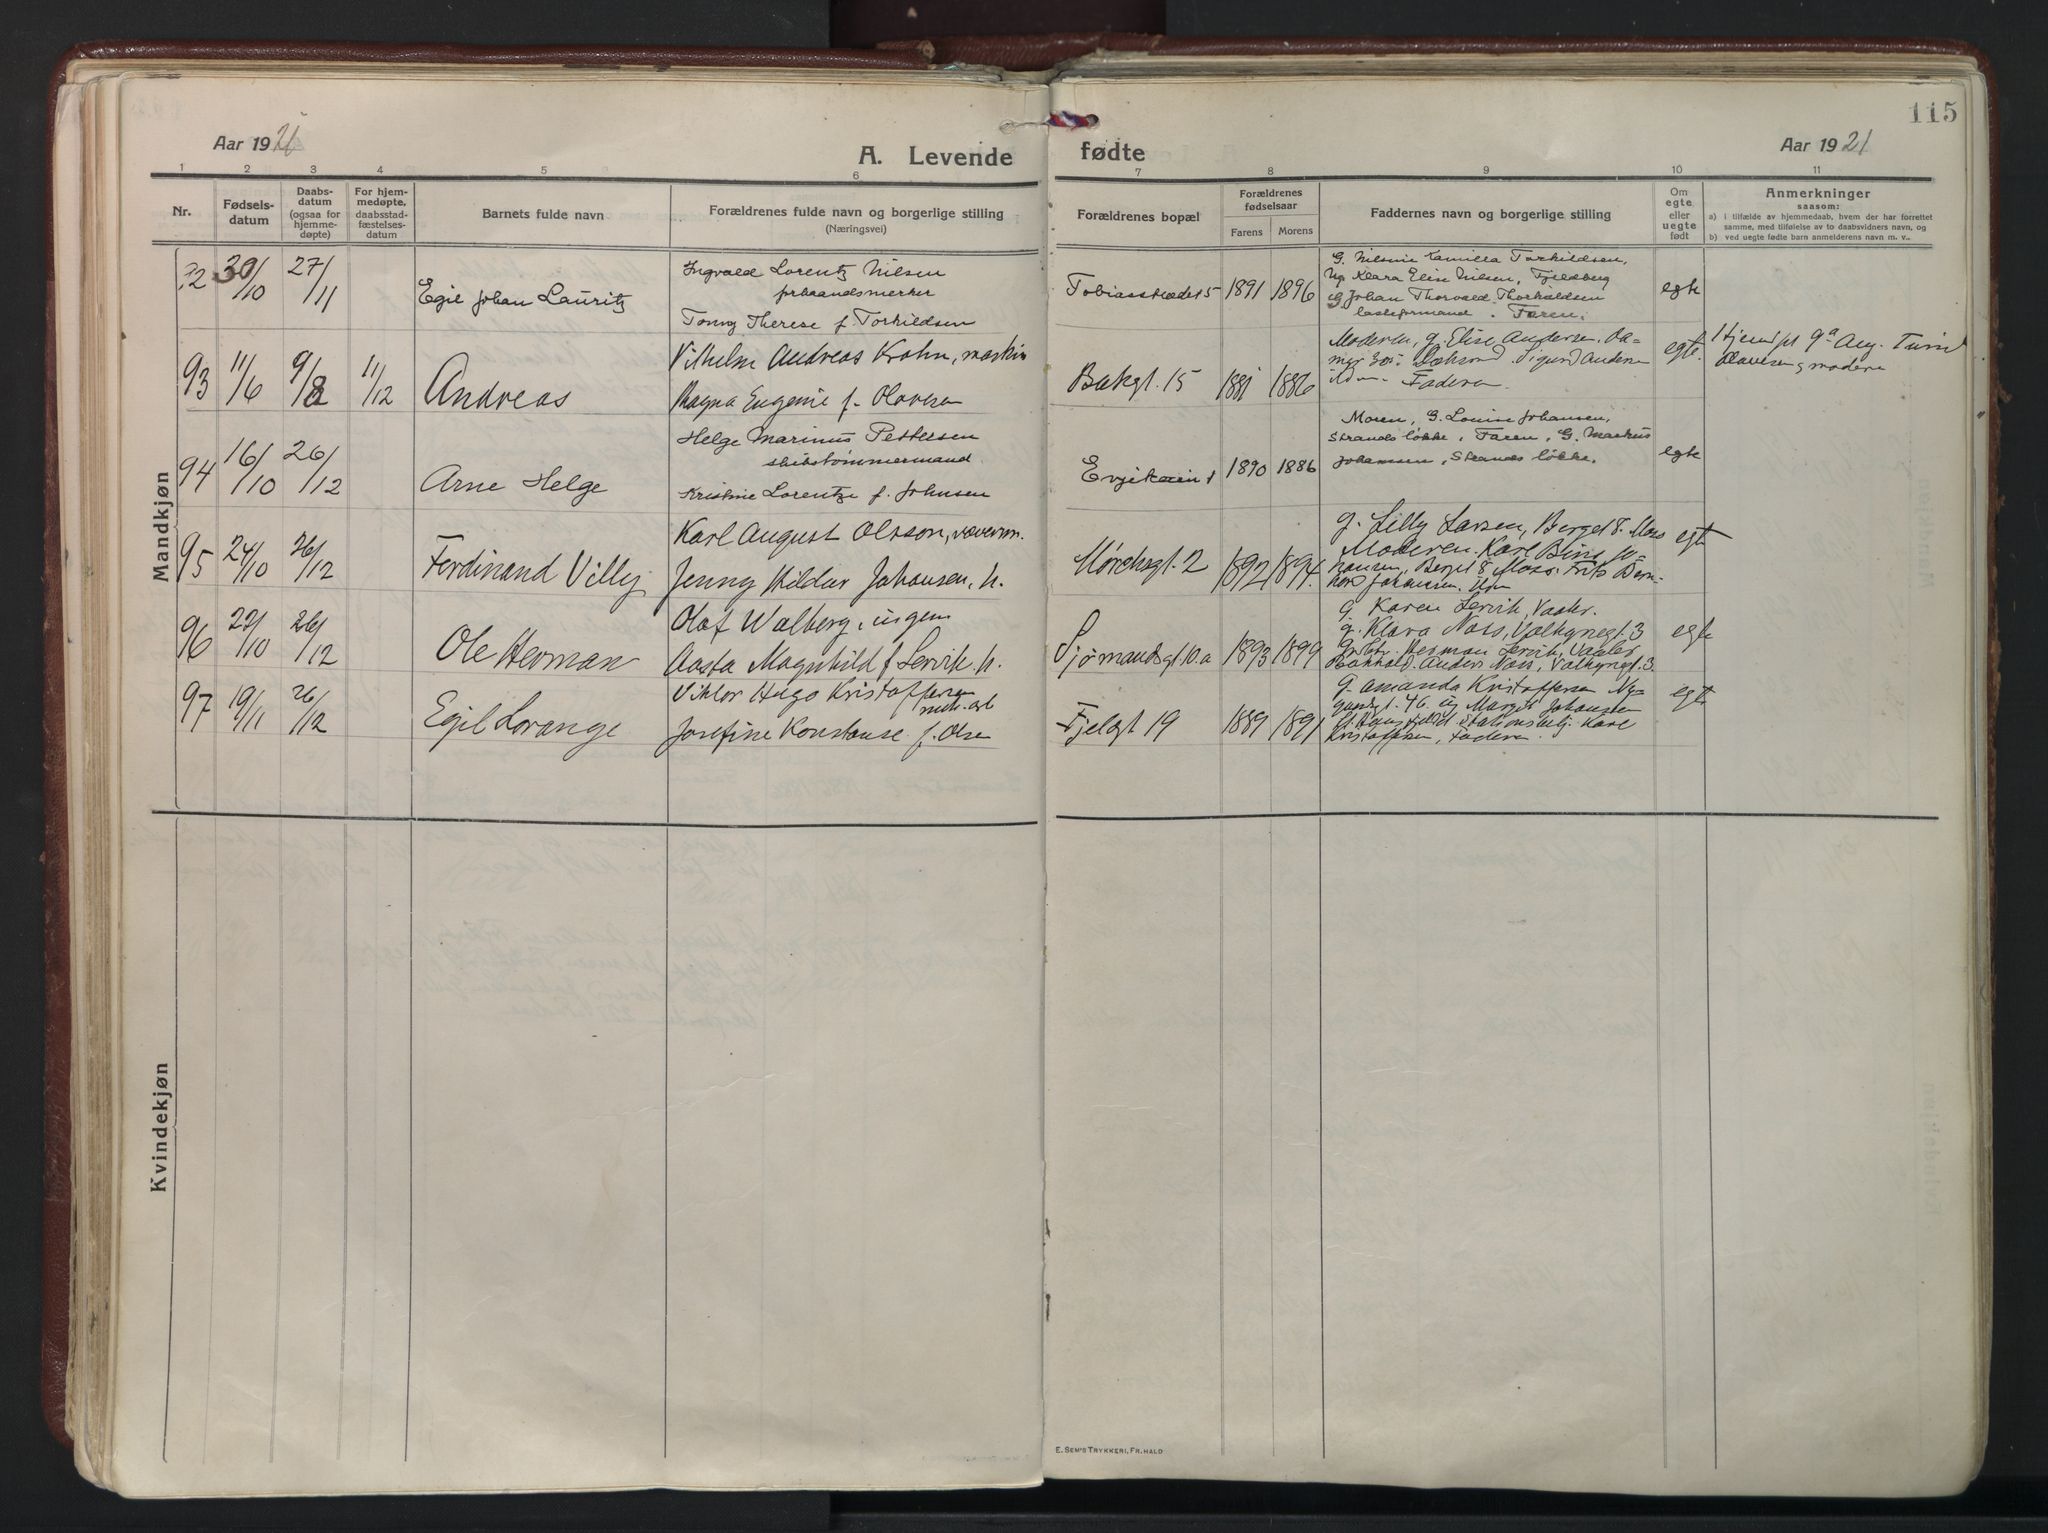 115
Aar 1921
A. Levende
fødte
Aar 1921
1 2 3 4 5 6 7 8 9 10 11
Nr.
Fødsels-
datum
Daabs-
datum
(ogsaa for
hjemme-
døpte)
For hjem-
medøpte,
daabsstad-
fæstelses-
datum
Barnets fulde navn
Forældrenes fulde navn og borgerlige stilling
(Næringsvei)
Forældrenes bopæl
Forældrenes
fødselsaar
Farens Morens
Faddernes navn og borgerlige stilling
Om
egte
eller
uegte
født
Anmerkninger
saasom:
a) i tilfælde av hjemmedaab, hvem der har forrettet
samme, med tilføielse av to daabsvidners navn, og
b) ved uegte fødte barn anmelderens navn m. v..
Mandkjøn
92 30/10 27/11
Egil Johan Lauritz
Ingvald Lorentz Nilsen
forhaandsmerker
Tonny Therese f. Torkildsen
Tobiasstrædet 5
1891 1896
G. Nilsine Kamilla Torkildsen,
Ug Klara Elise Nilsen, Fjeldberg
G. Johan Thorvald Thorkildsen
lasteformand. Faren.
egte
93 11/6 9/8 11/12
Andreas
Vilhelm Andreas Krohn, maskin
Magna Eugenie f. Olavesen
Bakgt. 15
1881 1886
Moderen, g. Elise Andersen, Da-
Sigurd Anders
Faderen.
egte.
Hjemdpt 9/8
Olavesen, g modere
94 16/10 26/12
Arne Helge
Helge Marinus Pettersen
skibstømmermand
Kristine Lorentze f. Johnsen
Evjekaien 1
1890 1886
Moren, G. Louise Johansen,
Strands løkke, Faren, G. Markus
Johansen, Strands løkke.
egte
95 24/10 26/12
Ferdinand Villy
Karl August Olsson, væverim.
Jenny Hildur Johansen, h.
Mørchsgt. 2
1892 1894.
g. Lilly Larsen, Berget 8. Moss
Moderen. Karl Jo-
hansen, Berget 8 Moss. Frits Bern-
hard Johansen.
egte
96 27/10 26/12
Ole Herman
Olaf Walberg, ingem
Aasta Magnhild f Lervik. h.
Sjømandsgt 10.a
1893 1899
g Karen Lervik, Vaaler.
g. Klara Næss, Valkyriegt. 3
Herman Lervik, Vaaler
Anders Næss, Valkyriegt. 3.
egte
97 19/11 26/12
Egil Lorange
Viktor Hugo Kristoffersen
mek. arb
Josefine Konstanse f. Olsen
Fjelgt 19
1889 1891
g. Amanda Kristoffersen Ny-
gaardgt. 46. ug Margit Johansen
Karl
Kristoffersen, Faderen.
egte
Kvindekjøn
E. SEM'S TRYKKERI, FR.HALD